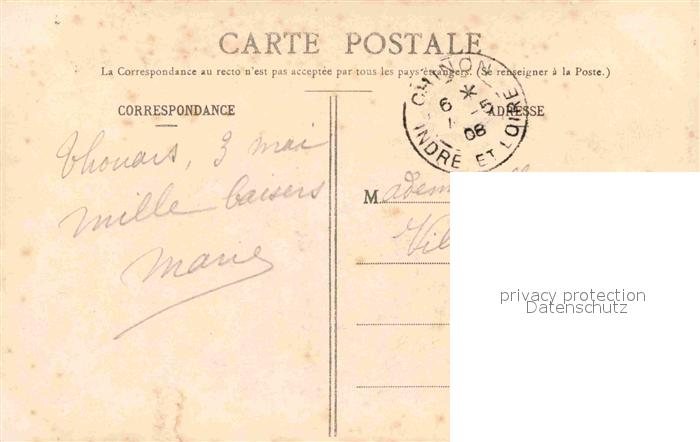 CARTE POSTALE
La Correspondance au recto n'est pas acceptée par tous les pays étrangers. (Se renseigner à la Poste.)
CORRESPONDANCE
ADRESSE
CHINON
6 5
08
INDRE ET LOIRE
Thouars, 3 mai
mille baisers
Marie
M
privacy protection
Datenschutz